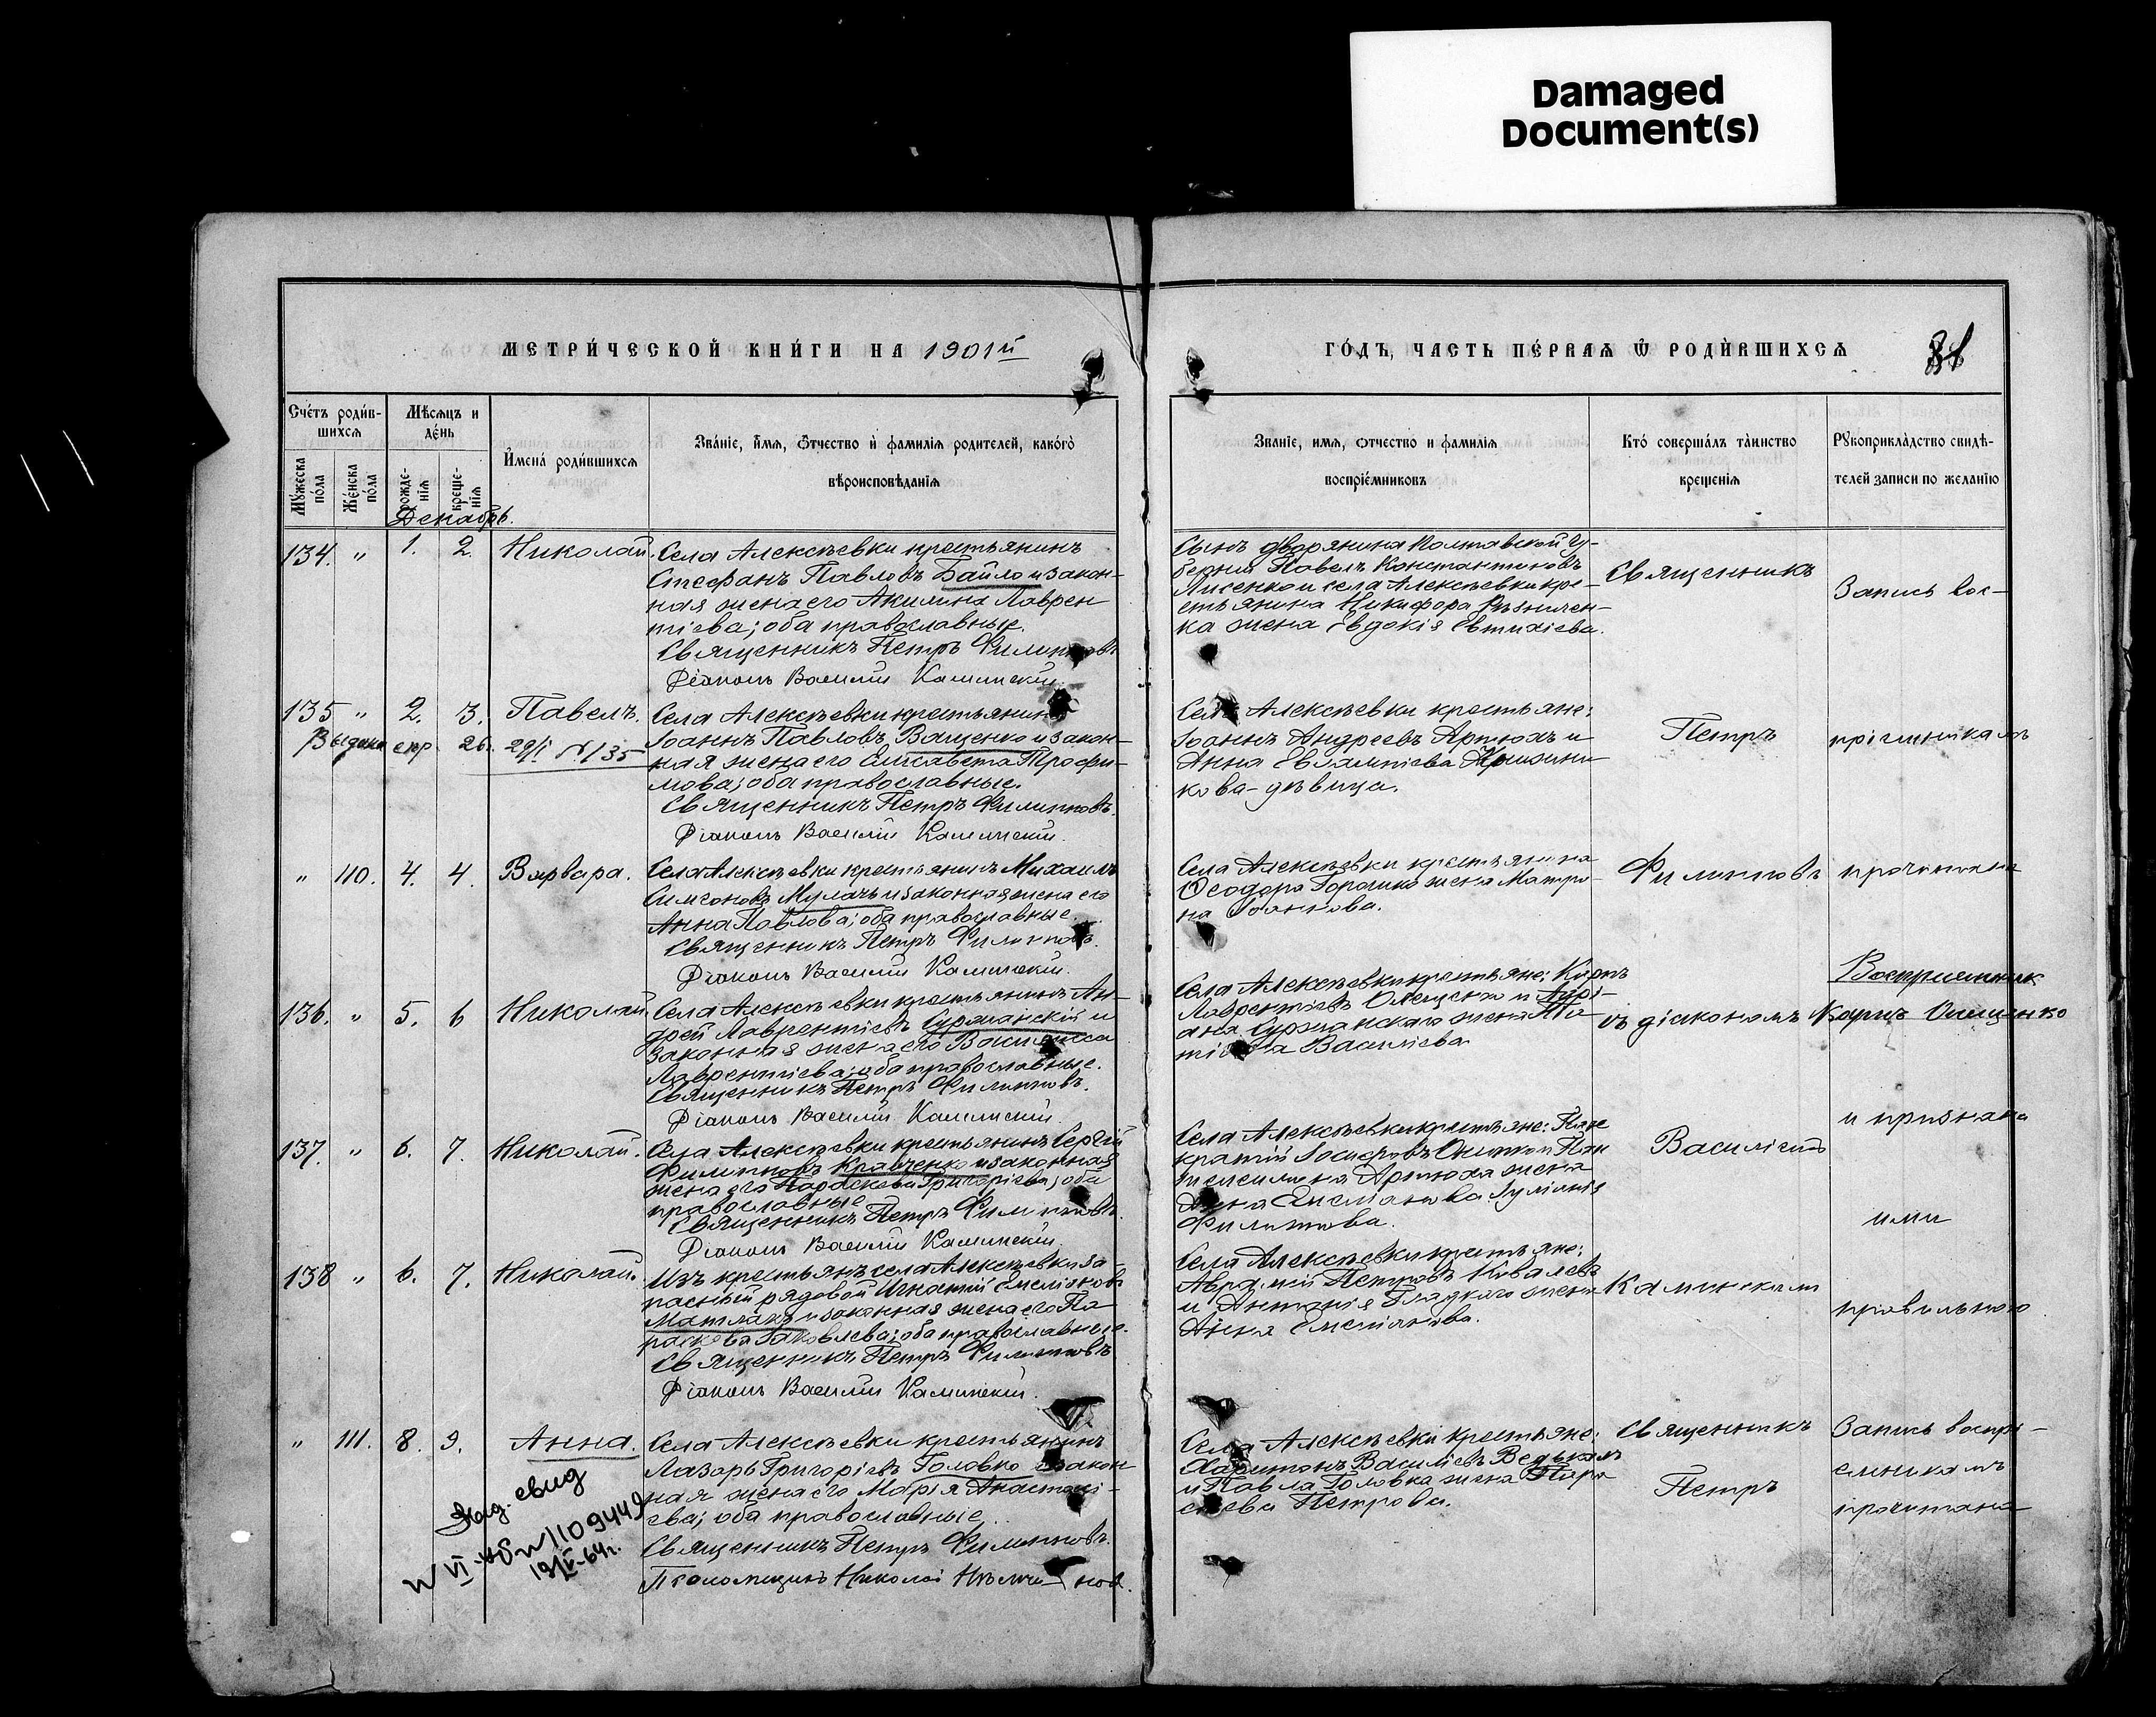 Damaged
Document(s)
МЕТРИ́ЧЕСКОЙ КНИ́ГИ НА 1901й
ГО́ДЪ, ЧАСТЬ ПЕ́РВАЯ Ѡ РОДИ́ВШИХСЯ
Сче́тъ роди́в-
шихся
Мѣсяцъ и
де́нь
Му́жеска
по́ла
Же́нска
по́ла
рожде-
нія
креще-
нія
И́мена́ роди́вшихся
Зва́ніе, и́мя, ѻ́тчество и҆ фамилія родителей, како́гѡ
вѣроисповѣданія
Званіе, имя, отчество и фамилія
воспріе́мниковъ
Кто́ соверша́лъ та́инство
крещенія
Рꙋкоприкла́дство свидѣ-
телей записи по желанію
Декабрь.
134. " 1. 2. Николай.
Села Алексѣевки крестьянинъ
Стефанъ Павловъ Байло и закон-
ная жена его Акилина Лаврен
тіева; оба православные.
Священникъ Петръ Филипповъ
Діаконъ Василій Калинскій.
Сынъ дворянина Полтавской гу-
берніи Павелъ Константиновъ
Лисенко и села Алексѣевки кре-
стьянина Никифора
ка жена Евдокія Евтихіева.
Священникъ
Запись вос-
135 " 2. 3. Павелъ.
Выдана 26. 29/I №135
Села Алексѣевки крестьянинъ
Іоаннъ Павловъ Ващенко и закон-
ная жена его Елисавета Трофи-
мова; оба православные.
Священникъ Петръ Филипповъ.
Діаконъ Василій Калинскій.
Села Алексѣевки крестьяне:
Іоаннъ Андреевъ Артюхъ и
Анна Евлампіева
кова- дѣвица.
Петръ
пріемникамъ
" 110. 4. 4. Варвара.
Села Алексѣевки крестьянинъ Михаилъ
Симеоновъ Мулачъ и законная жена его
Анна Павлова; оба православные.
Священникъ Петръ Филипповъ.
Діаконъ Василій Калинскій.
Села Алексѣевки крестьянина
Ѳеодора жена Матро-
на Іоаннова.
Филипповъ
прочитана
136. " 5. 6 Николай
Села Алексѣевки крестьянинъ Ан-
дрей Лаврентіевъ Суржанскій и
законная жена его Василисса
Лаврентіева; оба православные.
Священникъ Петръ Филипповъ.
Діаконъ Василій Калинскій.
Села Алексѣевки крестьяне: Карпъ
Лаврентіевъ Олещенко и
Суржанскаго жена
Василіева
съ діакономъ
Воспріемникъ
Карпъ Олещенко
137. " 6. 7. Николай.
Села Алексѣевки крестьянинъ Сергій
Филипповъ Кравченко и законная
жена его Параскева Григоріева; оба
православные
Священникъ Петръ Филипповъ.
Діаконъ Василій Калинскій.
Села Алексѣевки крестьяне: Пан
кратій
Артюха жена
Филиппова.
Василіемъ
и признана
ими
138 " 6. 7. Николай.
Изъ крестьянъ села Алексѣевки за-
пасный рядовой Игнатій Емеліановъ
и законная жена его Па
раскева Іаковлева; оба православные.
Священникъ Петръ Филипповъ
Діаконъ Василій Калинскій.
Села Алексѣевки крестьяне:
Аврамій Петровъ Ковалевъ
и Антонія Гладкаго жена
Анна Емеліанова.
Калинскимъ
правильною
" 111. 8. 9. Анна.
Села Алексѣевки крестьянинъ
Лазарь Григоріевъ Головко и закон
ная жена его Марія Анастасі-
ева; оба православные.
Священникъ Петръ Филипповъ.
Псаломщикъ Николай
Села Алексѣевки крестьяне:
Харитонъ Василіевъ
и Павла Головка жена Пара
скева Петрова.
Священникъ
Петръ
Запись воспрі-
емникамъ
прочитана